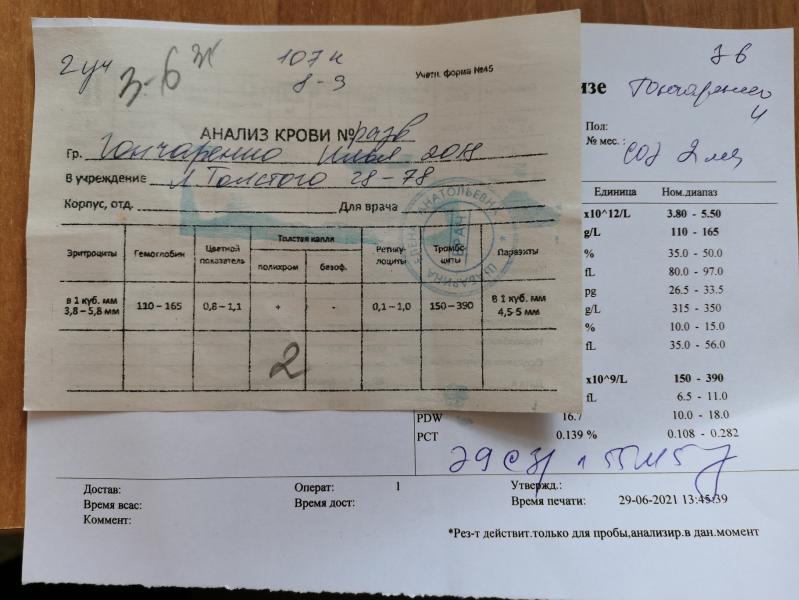 2 уч 3-6 107 к
8-9
Учетн. форма №45
АНАЛИЗ КРОВИ № разв
Гр. Гончаренко Илья 2018
В учреждение Л Толстого 28-78
Корпус, отд. Для врача
Эритроциты Гемоглобин Цветной показатель Толстая капля Ретику-лоциты Тромбо-циты Паразиты
полихром базоф.
в 1 куб. мм 3,8 – 5,8 мм 110 – 165 0,8 – 1,1 + - 0,1 – 1,0 150 – 390 в 1 куб. мм 4,5-5 мм
2
ЕЛЕНА АНАТОЛЬЕВНА
ВРАЧ
изе Гончаренко
И
Пол:
№ мес. :
СОЭ 2 мм
Единица Ном.диапаз
x10^12/L 3.80 - 5.50
g/L 110 - 165
% 35.0 - 50.0
fL 80.0 - 97.0
pg 26.5 - 33.5
g/L 315 - 350
% 10.0 - 15.0
fL 35.0 - 56.0
x10^9/L 150 - 390
fL 6.5 - 11.0
PDW 16.7 10.0 - 18.0
PCT 0.139 % 0.108 - 0.282
Э9 С31 л 55 м 5
Достав: Операт: 1 Утвержд.:
Время всас: Время дост: Время печати: 29-06-2021 13:45:39
Коммент:
*Рез-т действит.только для пробы,анализир.в дан.момент